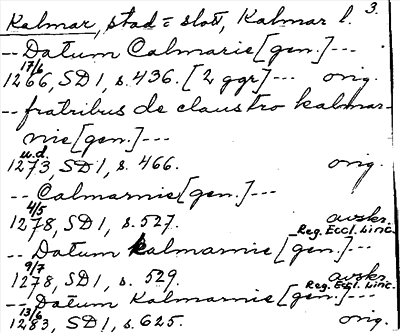 Kalmar, stad = slott, Kalmar l. 3.
-- Datum Calmarie [gen.] ---
17/6
1266, SD 1, s. 436. [2 ggr] --- orig.
-- fratribus de claustro kalmar-
nie [gen.] ---
u.d.
1273, SD 1, s. 466. orig.
-- Calmarnie [gen.] ---
4/5
1278, SD 1, s. 527. avskr.
Reg. Eccl. Linc.
-- Datum kalmarnie [gen.] ---
9/7
1278, SD 1, s. 529. avskr.
Reg. Eccl. Linc.
-- Datum Kalmarnie [gen.] ---
13/6
1283, SD 1, s. 625. orig.